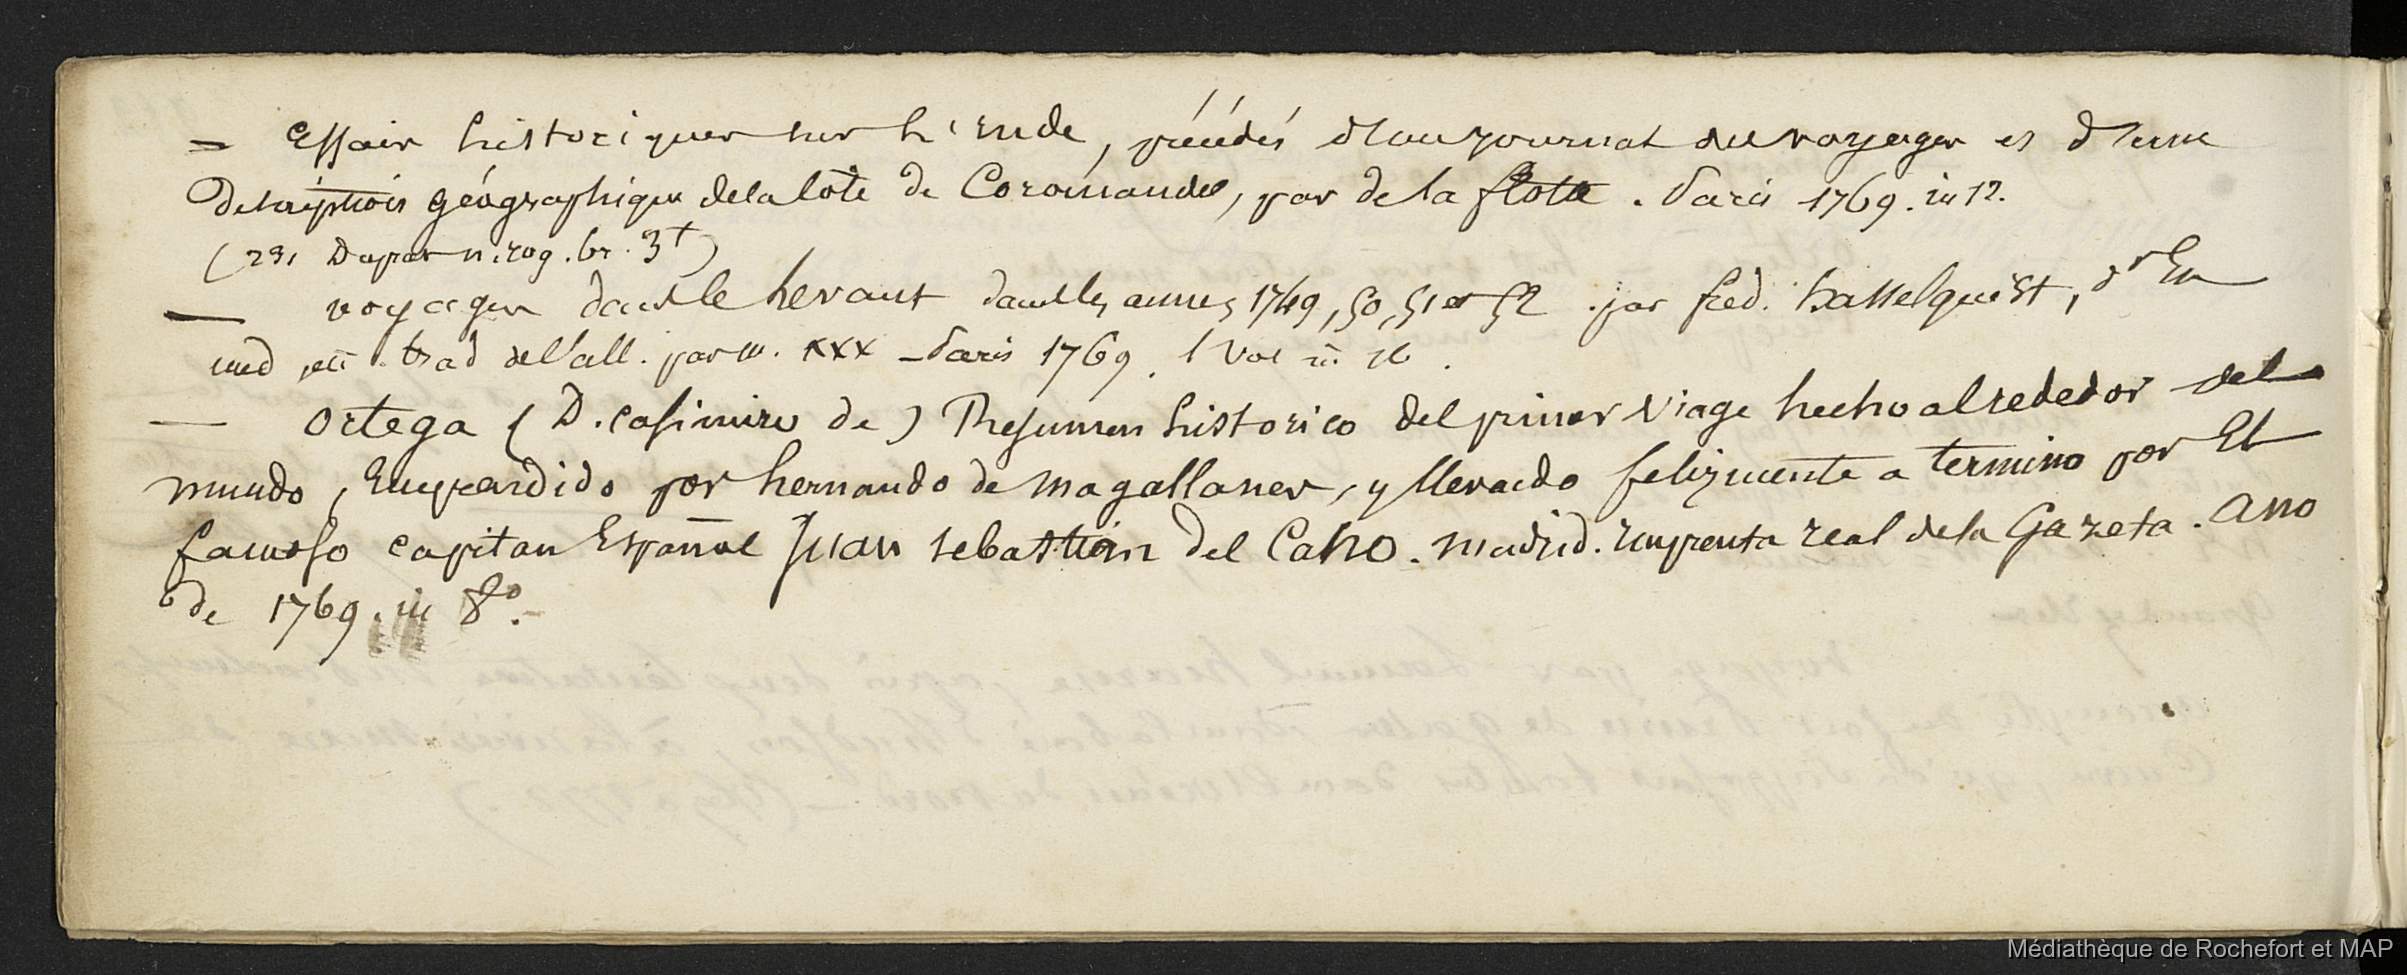 = Essais historiques sur l'inde, précédés d'un journal de voyages et d'une
Description géographique de la Côte de Coromandel, par de la flotte. Paris 1769. in 12.
(231 Dapar n. 209. br. 3t)
— voyages dans le Levant dans les années 1749, 50, 51 et 52. par fred. hasselquist, dr En
med, etc. trad de l'all. par m. xxx — Paris 1769. 1 Vol in 16.
— Ortega (D. Casimiro de) Resumen historico del primer Viage hecho al rededor del
mundo, Emprendido por hernando de magallanes, y llevado felizmente a termino por El
famoso capitan Español Juan sebastian del Cano. madrid. imprenta real de la Gazeta. Ano
de 1769. in 8°.
Médiathèque de Rochefort et MAP